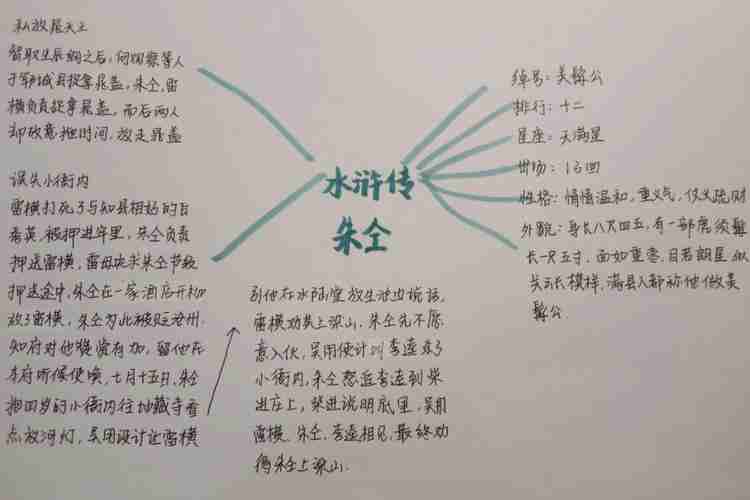 私放晁天王
智取生辰纲之后，何观察等人
于郓城县捉拿晁盖，朱仝，雷
横负责捉拿晁盖，而后两人
却故意拖时间，放走晁盖
误失小衙内
雷横打死了与知县相好的白
秀英，被押进牢里，朱仝负责
押送雷横，雷母央求朱仝节级
押送途中，朱仝在一家酒店开枷
放了雷横，朱仝为此被贬沧州．
知府对他赞赏有加，留他在
本府听候使唤，七月十五日，朱仝
抱四岁的小衙内往地藏寺看
点放河灯，吴用设计让雷横
到他在水陆堂放生池边说话，
雷横劝其上梁山．朱仝先不愿
意入伙，吴用使计叫李逵杀了
小衙内，朱仝怒追李逵到柴
进庄上，柴进说明底里，吴用
雷横、朱仝，李逵相见，最终劝
得朱仝上梁山．
水浒传
朱仝
绰号：美髯公
排行：十二
星座：天满星
出场：
性格：情悟温和，重义气，仗义疏财
外貌：身长八尺四五，有一部虎须髯
长一尺五寸，面如重枣，目若朗星，似
关云长模样，满县人都称他做美
髯公．